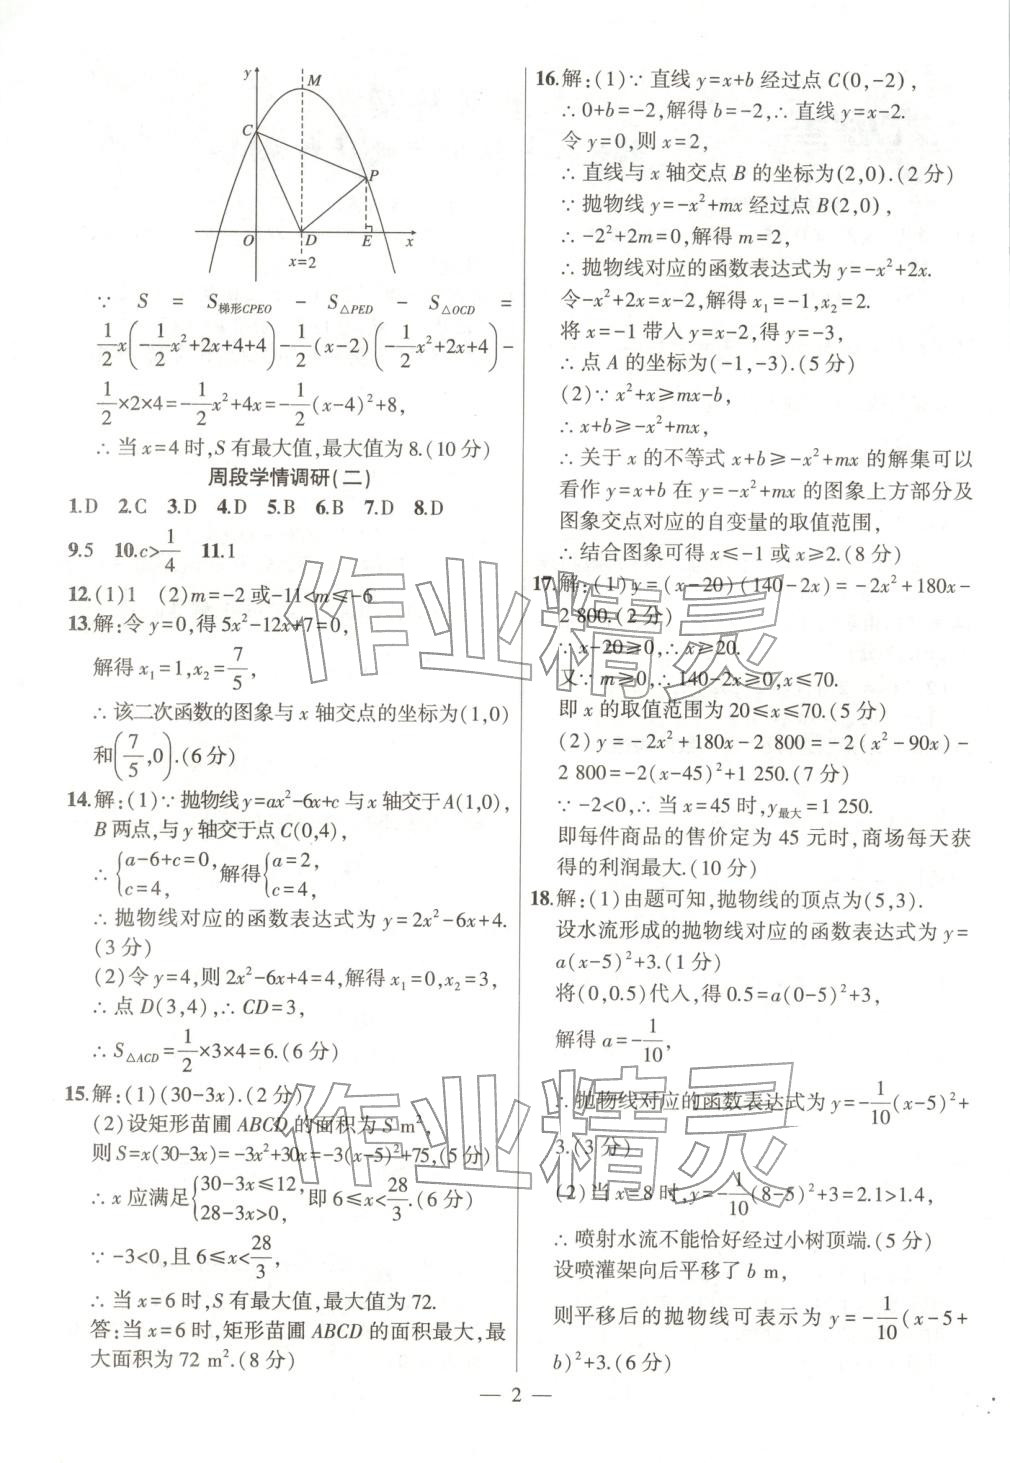 y
M
C
P
O
D
E
x
x=2
∵ S = S梯形CPEO − S△PED − S△OCD =
1/2 x(−1/2 x²+2x+4+4)−1/2(x−2)(−1/2 x²+2x+4)−
1/2×2×4=−1/2 x²+4x=−1/2(x−4)²+8,
∴ 当 x=4 时,S 有最大值,最大值为 8.(10 分)
周段学情调研(二)
1.D 2.C 3.D 4.D 5.B 6.B 7.D 8.D
9.5 10.c>1/4 11.1
12.(1)1 (2)m=−2 或−11<m≤−6
13.解:令 y=0,得 5x²−12x+7=0,
解得 x₁=1,x₂=7/5,
∴ 该二次函数的图象与 x 轴交点的坐标为(1,0)
和(7/5,0).(6 分)
14.解:(1)∵ 抛物线 y=ax²−6x+c 与 x 轴交于 A(1,0),
B 两点,与 y 轴交于点 C(0,4),
∴ {a−6+c=0, c=4, 解得{a=2, c=4,
∴ 抛物线对应的函数表达式为 y=2x²−6x+4.
(3 分)
(2)令 y=4,则 2x²−6x+4=4,解得 x₁=0,x₂=3,
∴ 点 D(3,4),∴ CD=3,
∴ S△ACD=1/2×3×4=6.(6 分)
15.解:(1)(30−3x).(2 分)
(2)设矩形苗圃 ABCD 的面积为 S m²,
则 S=x(30−3x)=−3x²+30x=−3(x−5)²+75,(5 分)
∴ x 应满足{30−3x≤12, 28−3x>0, 即 6≤x<28/3.(6 分)
∵ −3<0,且 6≤x<28/3,
∴ 当 x=6 时,S 有最大值,最大值为 72.
答:当 x=6 时,矩形苗圃 ABCD 的面积最大,最
大面积为 72 m².(8 分)
16.解:(1)∵ 直线 y=x+b 经过点 C(0,−2),
∴ 0+b=−2,解得 b=−2,∴ 直线 y=x−2.
令 y=0,则 x=2,
∴ 直线与 x 轴交点 B 的坐标为(2,0).(2 分)
∵ 抛物线 y=−x²+mx 经过点 B(2,0),
∴ −2²+2m=0,解得 m=2,
∴ 抛物线对应的函数表达式为 y=−x²+2x.
令−x²+2x=x−2,解得 x₁=−1,x₂=2.
将 x=−1 带入 y=x−2,得 y=−3,
∴ 点 A 的坐标为(−1,−3).(5 分)
(2)∵ x²+x≥mx−b,
∴ x+b≥−x²+mx,
∴ 关于 x 的不等式 x+b≥−x²+mx 的解集可以
看作 y=x+b 在 y=−x²+mx 的图象上方部分及
图象交点对应的自变量的取值范围,
∴ 结合图象可得 x≤−1 或 x≥2.(8 分)
17.解:(1)y=(x−20)(140−2x)=−2x²+180x−
2 800.(2 分)
∵ x−20≥0,∴ x≥20.
又∵ m≥0,∴ 140−2x≥0,x≤70.
即 x 的取值范围为 20≤x≤70.(5 分)
(2)y=−2x²+180x−2 800=−2(x²−90x)−
2 800=−2(x−45)²+1 250.(7 分)
∵ −2<0,∴ 当 x=45 时,y最大=1 250.
即每件商品的售价定为 45 元时,商场每天获
得的利润最大.(10 分)
18.解:(1)由题可知,抛物线的顶点为(5,3).
设水流形成的抛物线对应的函数表达式为 y=
a(x−5)²+3.(1 分)
将(0,0.5)代入,得 0.5=a(0−5)²+3,
解得 a=−1/10,
∴ 抛物线对应的函数表达式为 y=−1/10(x−5)²+
3.(3 分)
(2)当 x=8 时,y=−1/10(8−5)²+3=2.1>1.4,
∴ 喷射水流不能恰好经过小树顶端.(5 分)
设喷灌架向后平移了 b m,
则平移后的抛物线可表示为 y=−1/10(x−5+
b)²+3.(6 分)
— 2 —
作业精灵
作业精灵